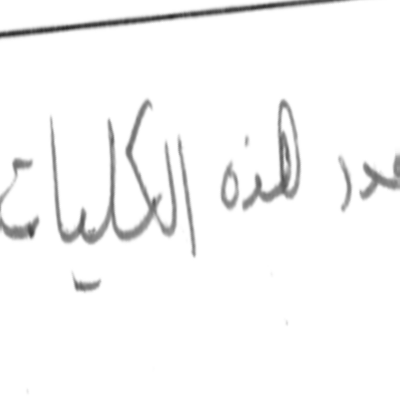 هذه الكليات